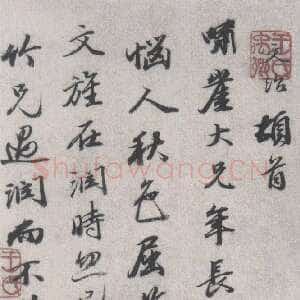 治頓首
嘯崖大兄年長
惱人秋色屈
文旌在潤時忽
竹兄過潤而不
Shufawang.CN